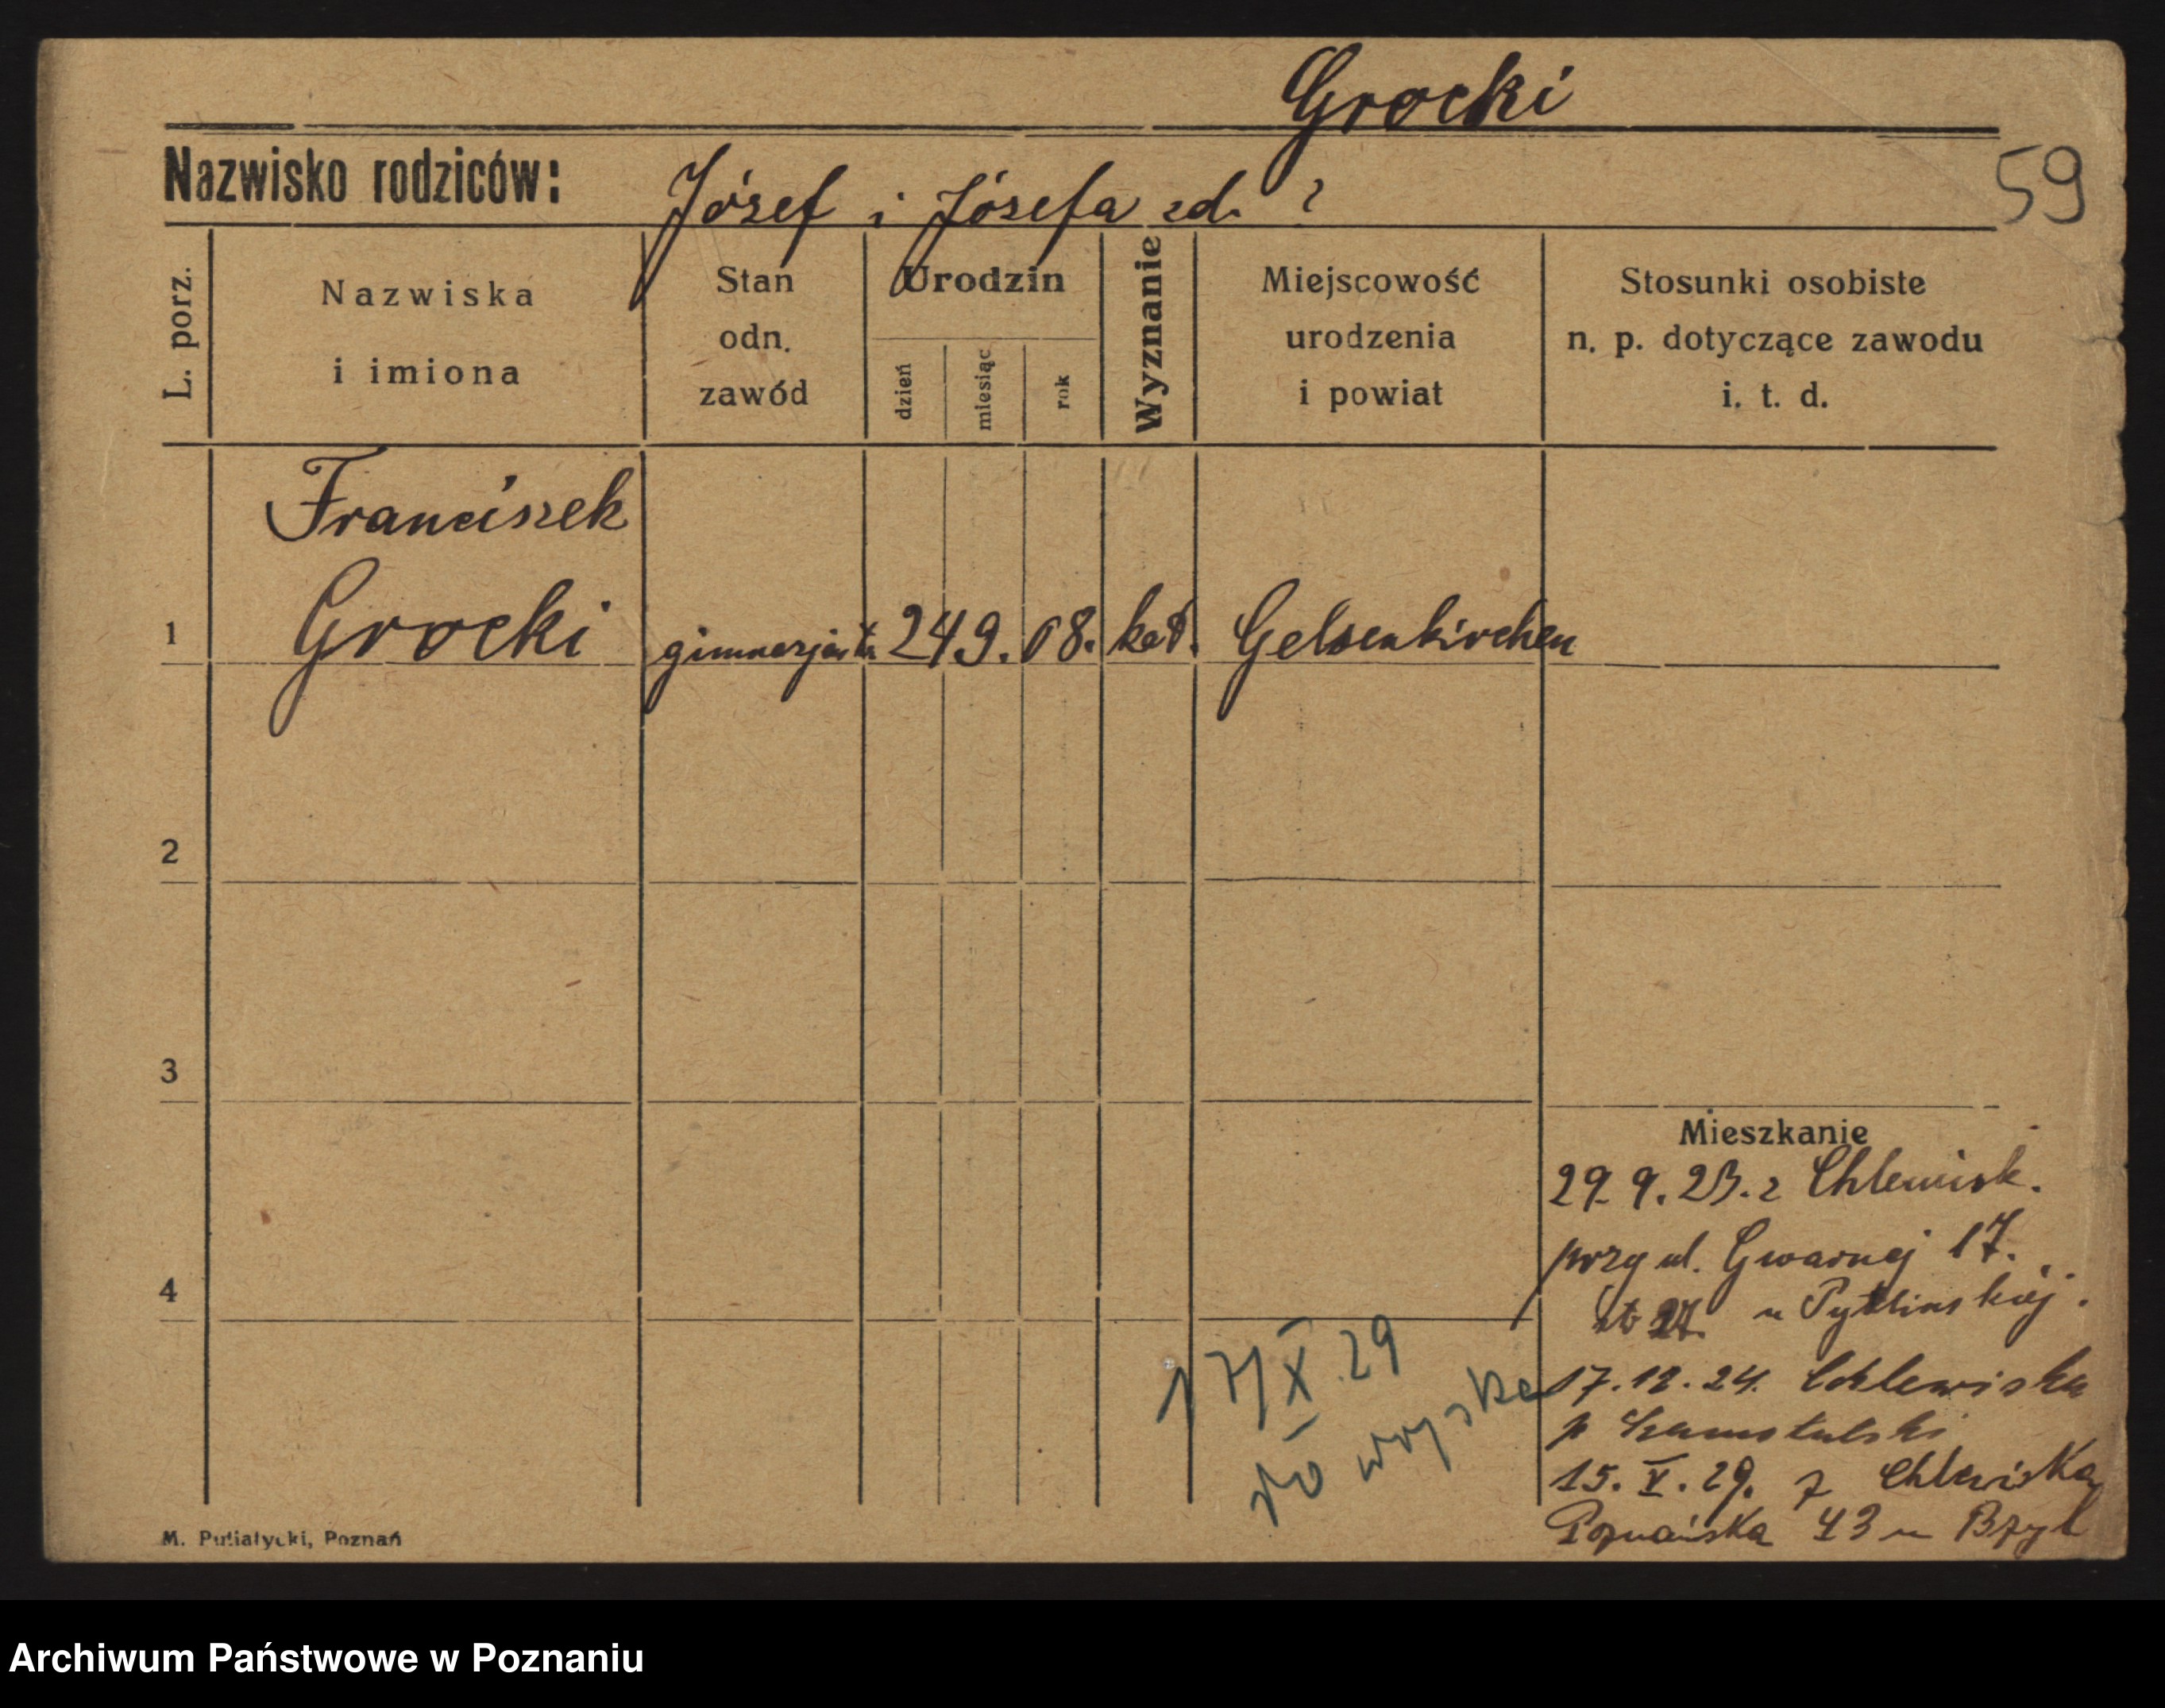 Grocki
59
Nazwisko rodziców: Józef i Józefa zd. ?
L. porz.
Nazwiska
i imiona
Stan
odn.
zawód
Urodzin
dzień
miesiąc
rok
Wyznanie
Miejscowość
urodzenia
i powiat
Stosunki osobiste
n. p. dotyczące zawodu
i. t. d.
Franciszek
1 Grocki gimnazjasta 24 9. 08. kat. Gelsenkirchen
2
3
4
Mieszkanie
29. 9. 23. z Chlewisk.
przy ul. Gwarnej 17.
u Pytlinskiej.
17. 12. 24. Chlewiska
p Szamotulski
15. V. 29. z Chlewiska
Poznańska 43 u Bzyl
17/X.29
do wojska
M. Putiatycki, Poznań
Archiwum Państwowe w Poznaniu